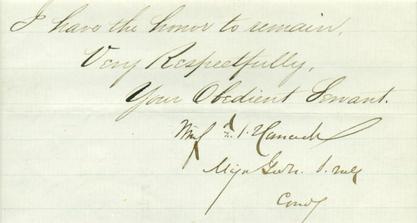 I have the honor to remain,
Very Respectfully,
Your Obedient Servant.
Winf'd S. Hancock
Maj Genl.
Comdg